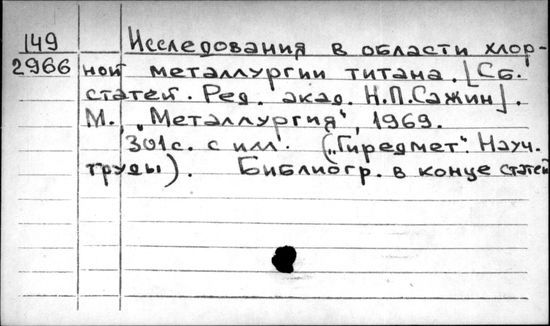 149 Исследования в области хлор-
2966 ной металлургии титана. [Сб.
статей. Ред. акад. Н.П.Сажин].
М., "Металлургия", 1969.
301с. с илл. ("Гиредмет". Науч.
труды). Библиогр. в конце статей